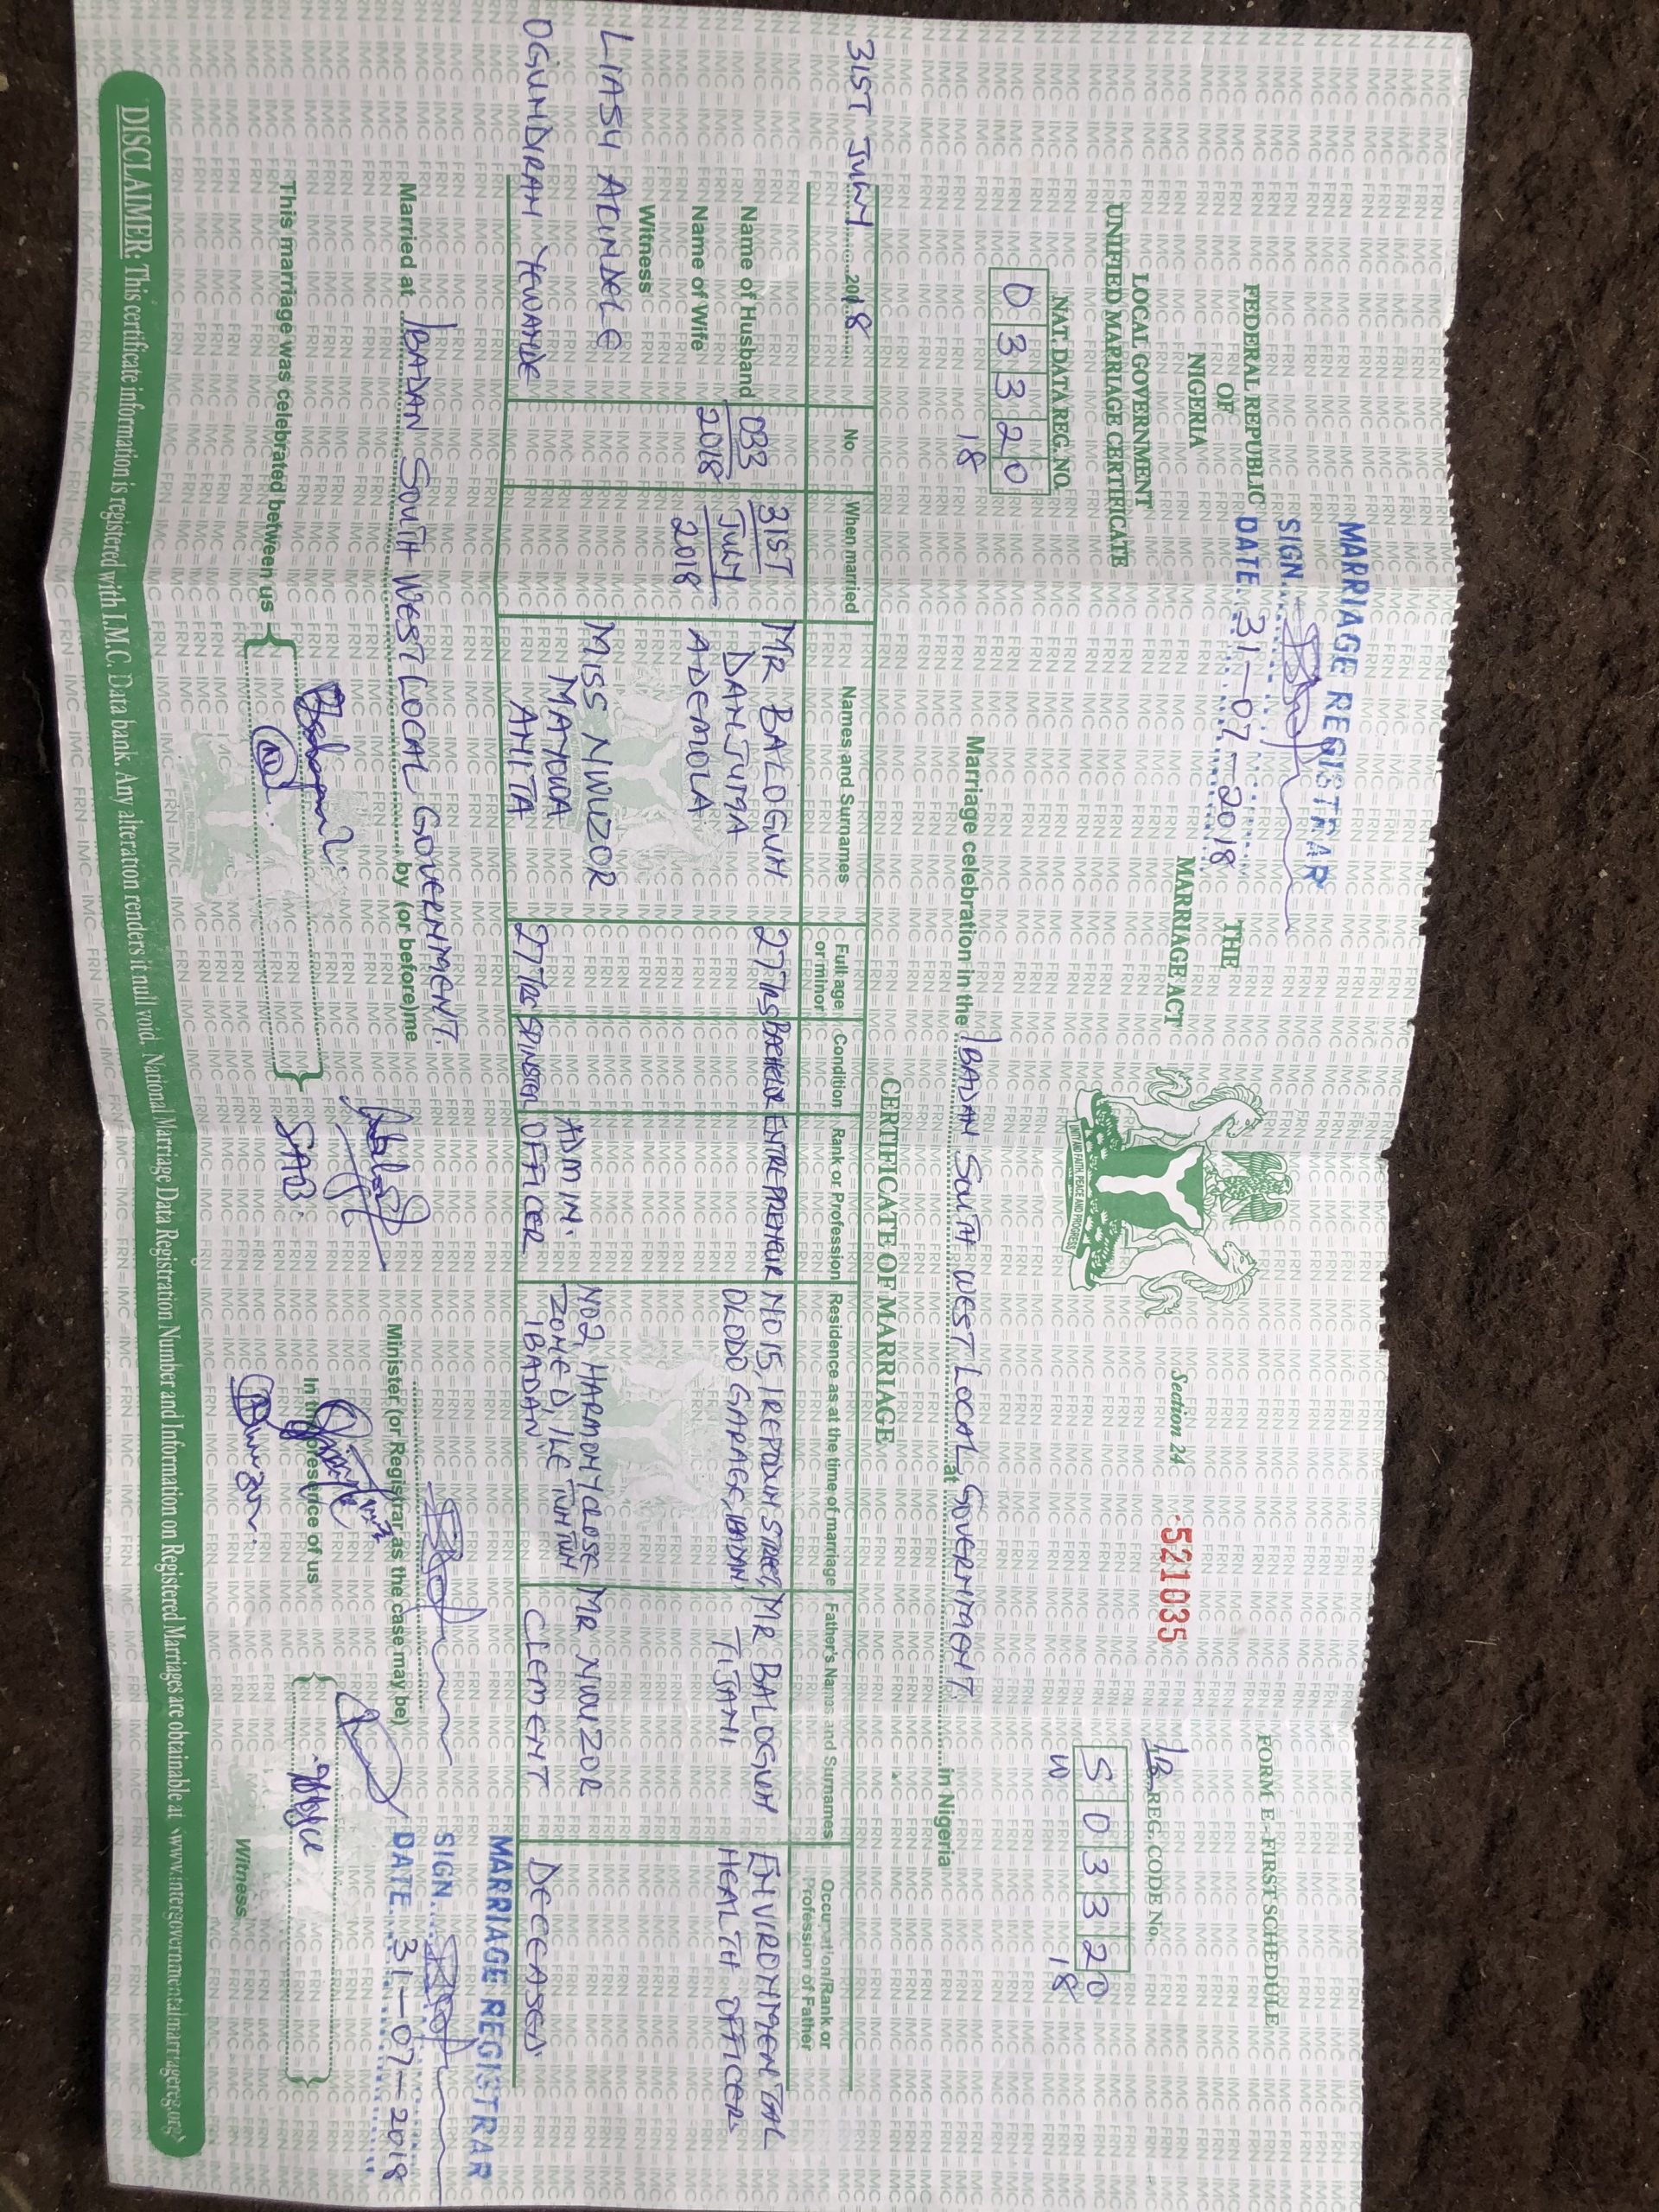 MARRIAGE REGISTRAR
SIGN
DATE 31-07-2018
FEDERAL REPUBLIC
OF
NIGERIA
LOCAL GOVERNMENT
UNIFIED MARRIAGE CERTIFICATE
NAT. DATA REG. NO.
0 3 3 2 0
18
THE
MARRIAGE ACT
UNITY AND FAITH, PEACE AND PROGRESS
Section 24
521035
FORM E - FIRST SCHEDULE
REG. CODE No.
S 0 3 3 2 0
W 18
Marriage celebration in the IBADAN SOUTH WEST LOCAL GOVERNMENT. at in Nigeria
CERTIFICATE OF MARRIAGE
31ST JULY 2018
No
When married
Names and Surnames
Full age or minor
Condition
Rank or Profession
Residence as at the time of marriage
Father's Names and Surnames
Occupation/Rank or Profession of Father
Name of Husband
033
2018
31ST
JULY
2018
MR BALOGUN
DANJUMA
ADEMOLA
27Yrs
BACHELOR
ENTREPRENEUR
NO 15, IREPODUN STREET,
OLODO GARAGE, IBADAN.
MR BALOGUN
TIJANI
ENVIRONMENTAL
HEALTH OFFICER
Name of Wife
Witness
LIASU ACINDELE
OGUNDIRAN YEWANDE
MISS NWUZOR
MAYOWA
ANITA
27Yrs
SPINSTER
ADMIN.
OFFICER
NO2, HARMONY CLOSE
ZONE D, ILE TUNTUN
IBADAN.
MR NWUZOR
CLEMENT
DECEASED.
Married at IBADAN SOUTH WEST LOCAL GOVERNMENT. by (or before) me
Minister (or Registrar as the case may be)
MARRIAGE REGISTRAR
SIGN
DATE 31-07-2018
This marriage was celebrated between us
In the presence of us
Witness
DISCLAIMER: This certificate information is registered with I.M.C. Data bank. Any alteration renders it null void. National Marriage Data Registration Number and Information on Registered Marriages are obtainable at <www.intergovernmentalmarriagereg.org>